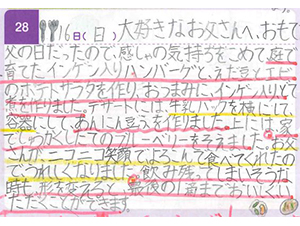 28
16日(日)大好きなお父さんへ、おもて
父の日だったので、感しゃの気持ちをこめて庭で
育てたインゲン入りハンバーグと、えだ豆とエビ
のポテトサラダを作り、おつまみに、インゲン入りと
煮を作りました。デザートには、牛乳パックを横にして
容器にして、あんにん豆ふを作りました。上には、家
でしゅうかくしたてのブルーベリーをそえました。お父
さんが、ニコニコ笑顔でよろこんで食べてくれたの
でうれしくなりました。飲み残ってしまいそうな
時も、形をかえると、最後の1滴までおいしくい
ただくことができます。